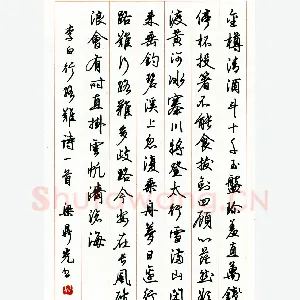 金樽清酒斗十千玉盤珍羞直萬錢
停杯投箸不能食拔劍四顧心茫然欲
渡黃河冰塞川將登太行雪滿山閑
來垂釣碧溪上忽復乘舟夢日邊行
路難行路難多歧路今安在長風破
浪會有时直掛雲帆濟滄海
李白行路難詩一首 梁鼎光書